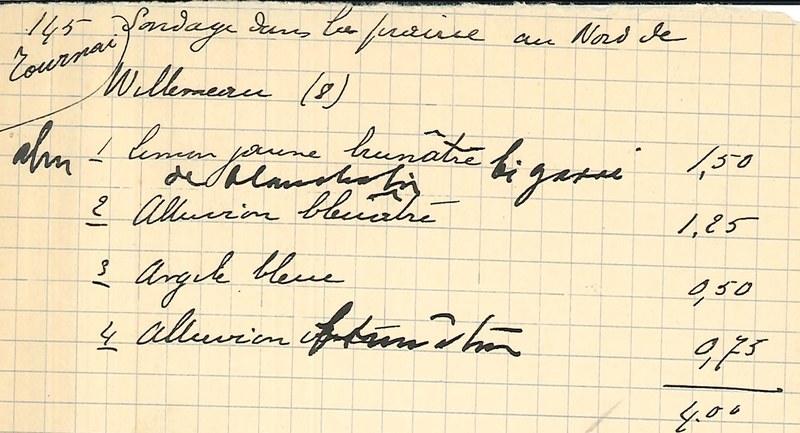 145
Tournai
Sondage dans la prairie au Nord de
Willemeau (8)
alm 1 limon jaune brunâtre bigarré 1,50
de blanchâtre
2 Alluvion bleuâtre 1,25
3 Argile bleue 0,50
4 Alluvion 0,75
4.00